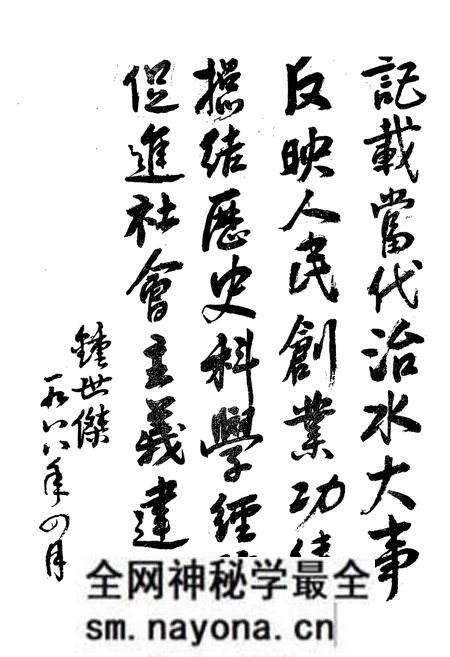 記載當代治水大事
反映人民創業功
總結歷史科學經
促進社會主義建
鍾世傑
一九八八年四月
全网神秘学最全
sm.nayona.cn